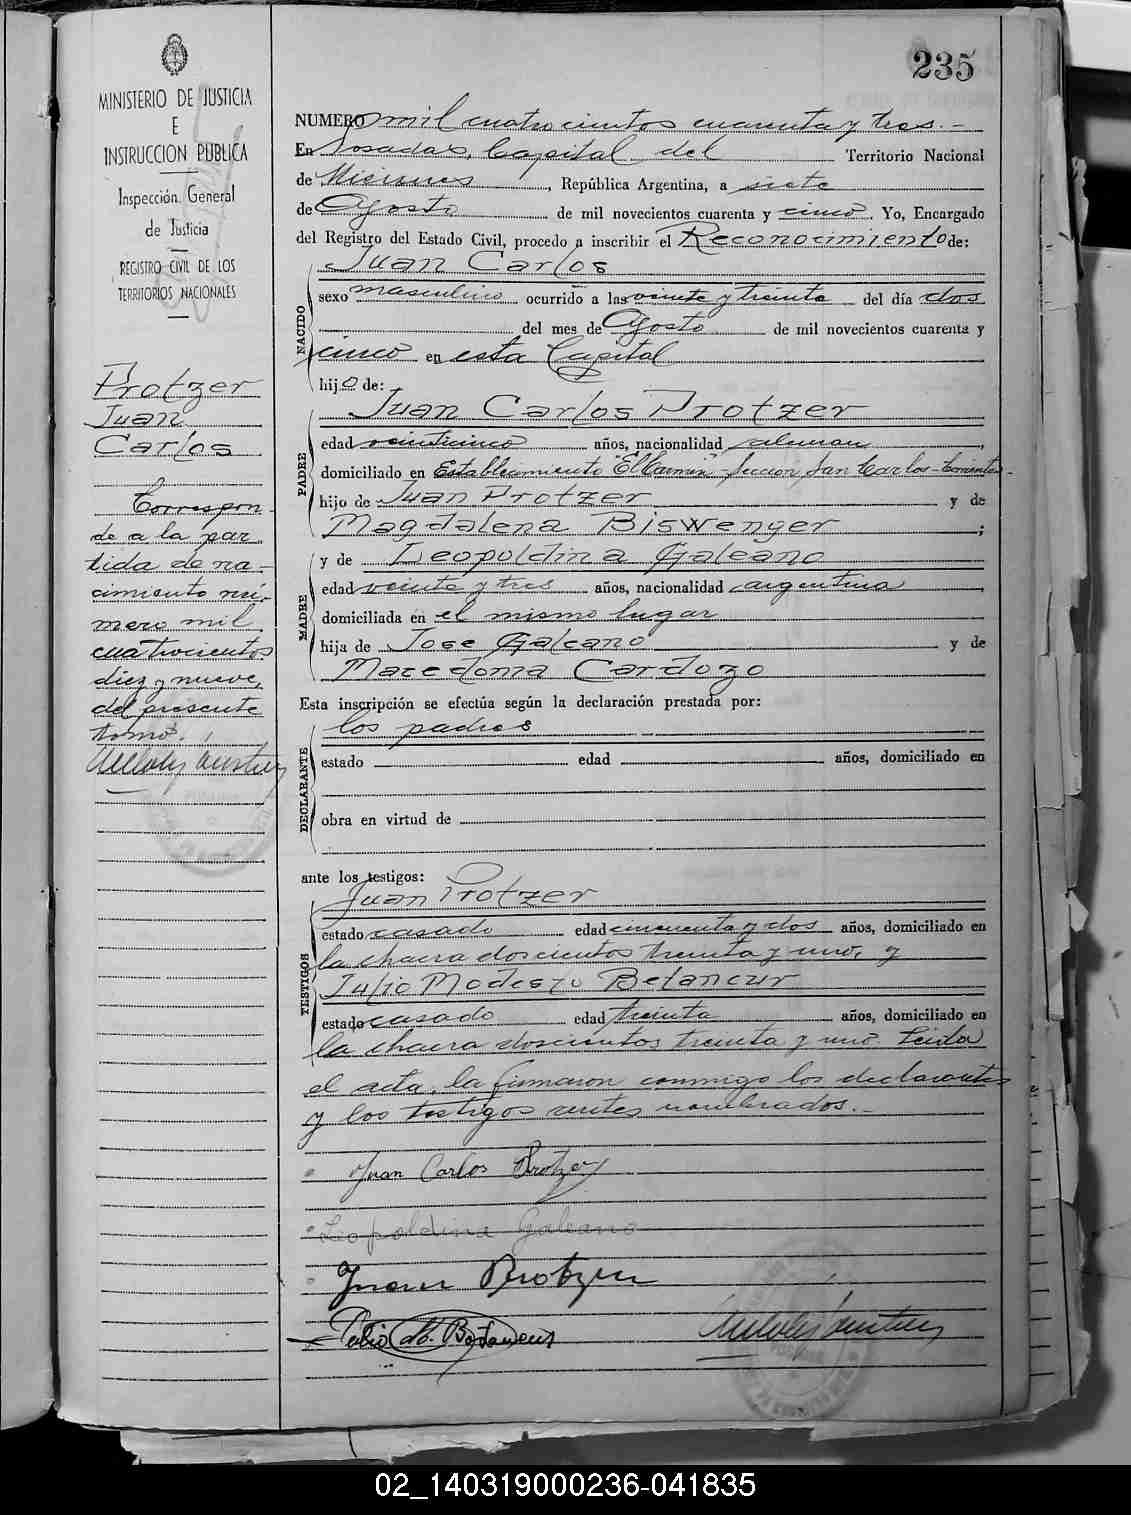 235
MINISTERIO DE JUSTICIA
E
INSTRUCCION PUBLICA
Inspección General
de Justicia
REGISTRO CIVIL DE LOS
TERRITORIOS NACIONALES
Protzer
Juan
Carlos
Correspon-
de a la par-
tida de na-
cimiento nú-
mero mil
cuatrocientos
diez y nueve,
del presente
tomo.
NUMERO mil cuatrocientos cuarenta y tres.-
En Posadas, Capital del Territorio Nacional
de Misiones, República Argentina, a siete
de Agosto de mil novecientos cuarenta y cinco. Yo, Encargado
del Registro del Estado Civil, procedo a inscribir el Reconocimiento de:
NACIDO
Juan Carlos
sexo masculino ocurrido a las veinte y treinta del día dos
del mes de Agosto de mil novecientos cuarenta y
cinco en esta Capital
hijo de:
PADRE
Juan Carlos Protzer
edad veinticinco años, nacionalidad aleman,
domiciliado en Establecimiento "El Carmen"-Seccion San Carlos-Corrientes-
hijo de Juan Protzer y de
Magdalena Biswenger;
MADRE
y de Leopoldina Galeano
edad veinte y tres años, nacionalidad argentina,
domiciliada en el mismo lugar
hija de Jose Galeano y de
Macedonia Cardozo
Esta inscripción se efectúa según la declaración prestada por:
DECLARANTE
los padres
estado edad años, domiciliado en
obra en virtud de
ante los testigos:
TESTIGOS
Juan Protzer
estado casado edad cincuenta y dos años, domiciliado en
la chacra doscientos treinta y uno, y
Julio Modesto Betancur
estado casado edad treinta años, domiciliado en
la chacra doscientos treinta y uno. Leida
el acta, la firmaron conmigo los declarantes
y los testigos antes nombrados.-
Juan Carlos Protzer
Leopoldina Galeano
Juan Protzer
POSADAS
02_140319000236-041835